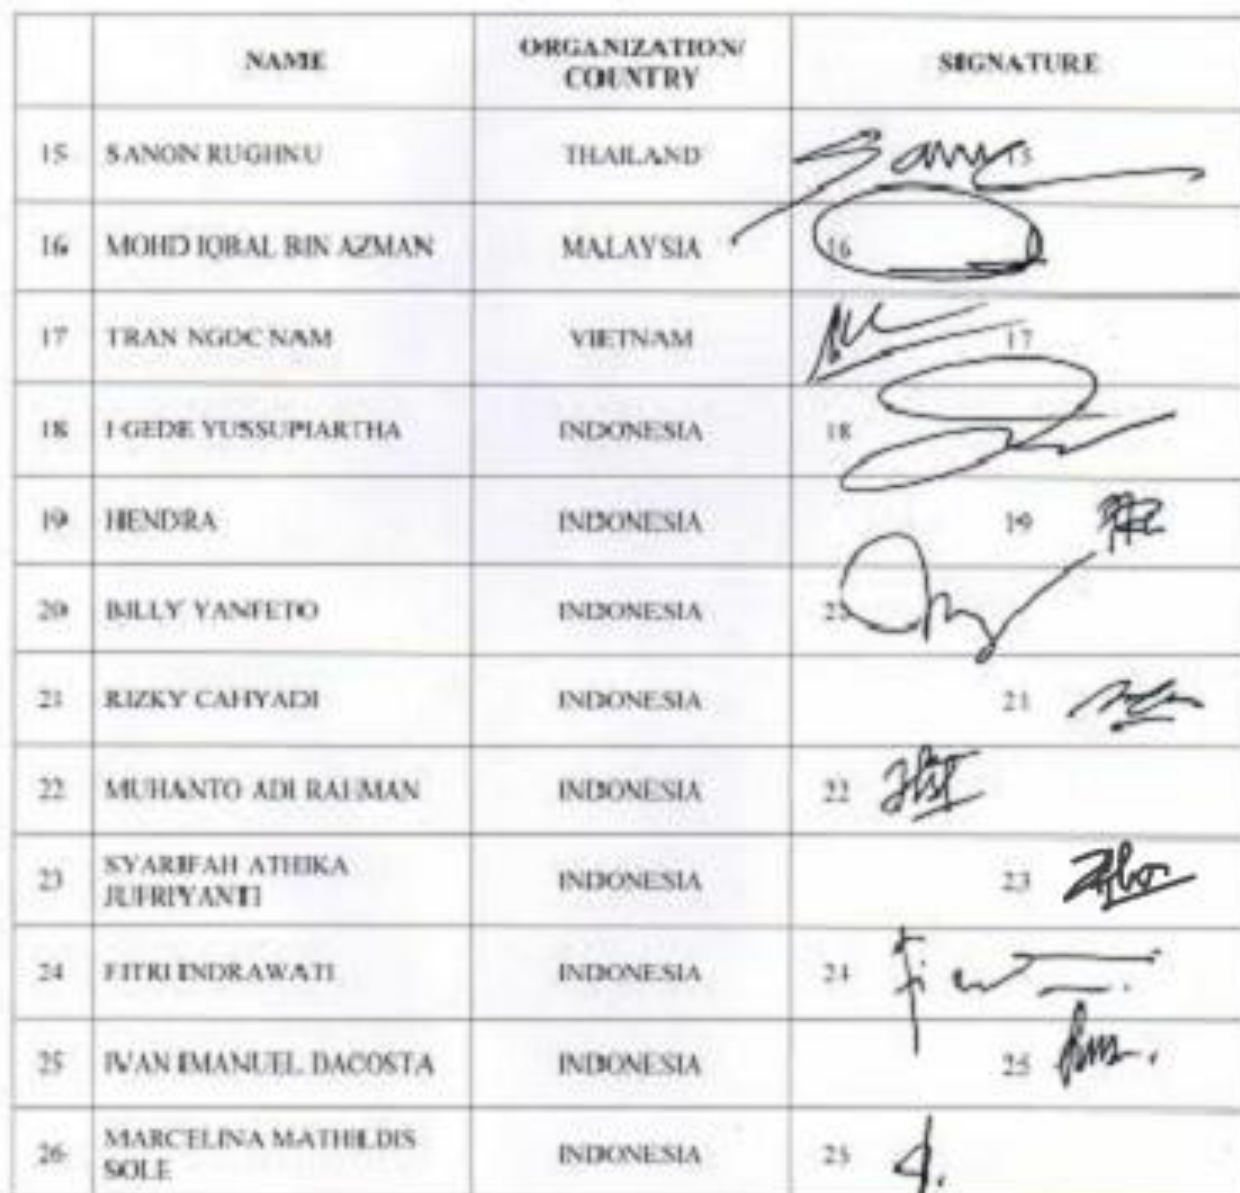 NAME ORGANIZATION/ SIGNATURE
COUNTRY
15 SANON RUGHNU THAILAND 15
16 MOHD IQBAL BIN AZMAN MALAYSIA 16
17 TRAN NGOC NAM VIETNAM 17
18 I GEDE YUSSUPIARTHA INDONESIA 18
19 HENDRA INDONESIA 19
20 BILLY YANFETO INDONESIA
21 RIZKY CAHYADI INDONESIA 21
22 MUHANTO ADI RAHMAN INDONESIA 22
23 SYARIFAH ATHIKA INDONESIA 23
JUFRIYANTI
24 FITRI INDRAWATI INDONESIA 24
25 IVAN EMANUEL DACOSTA INDONESIA 25
26 MARCELINA MATHILDIS INDONESIA
SOLE